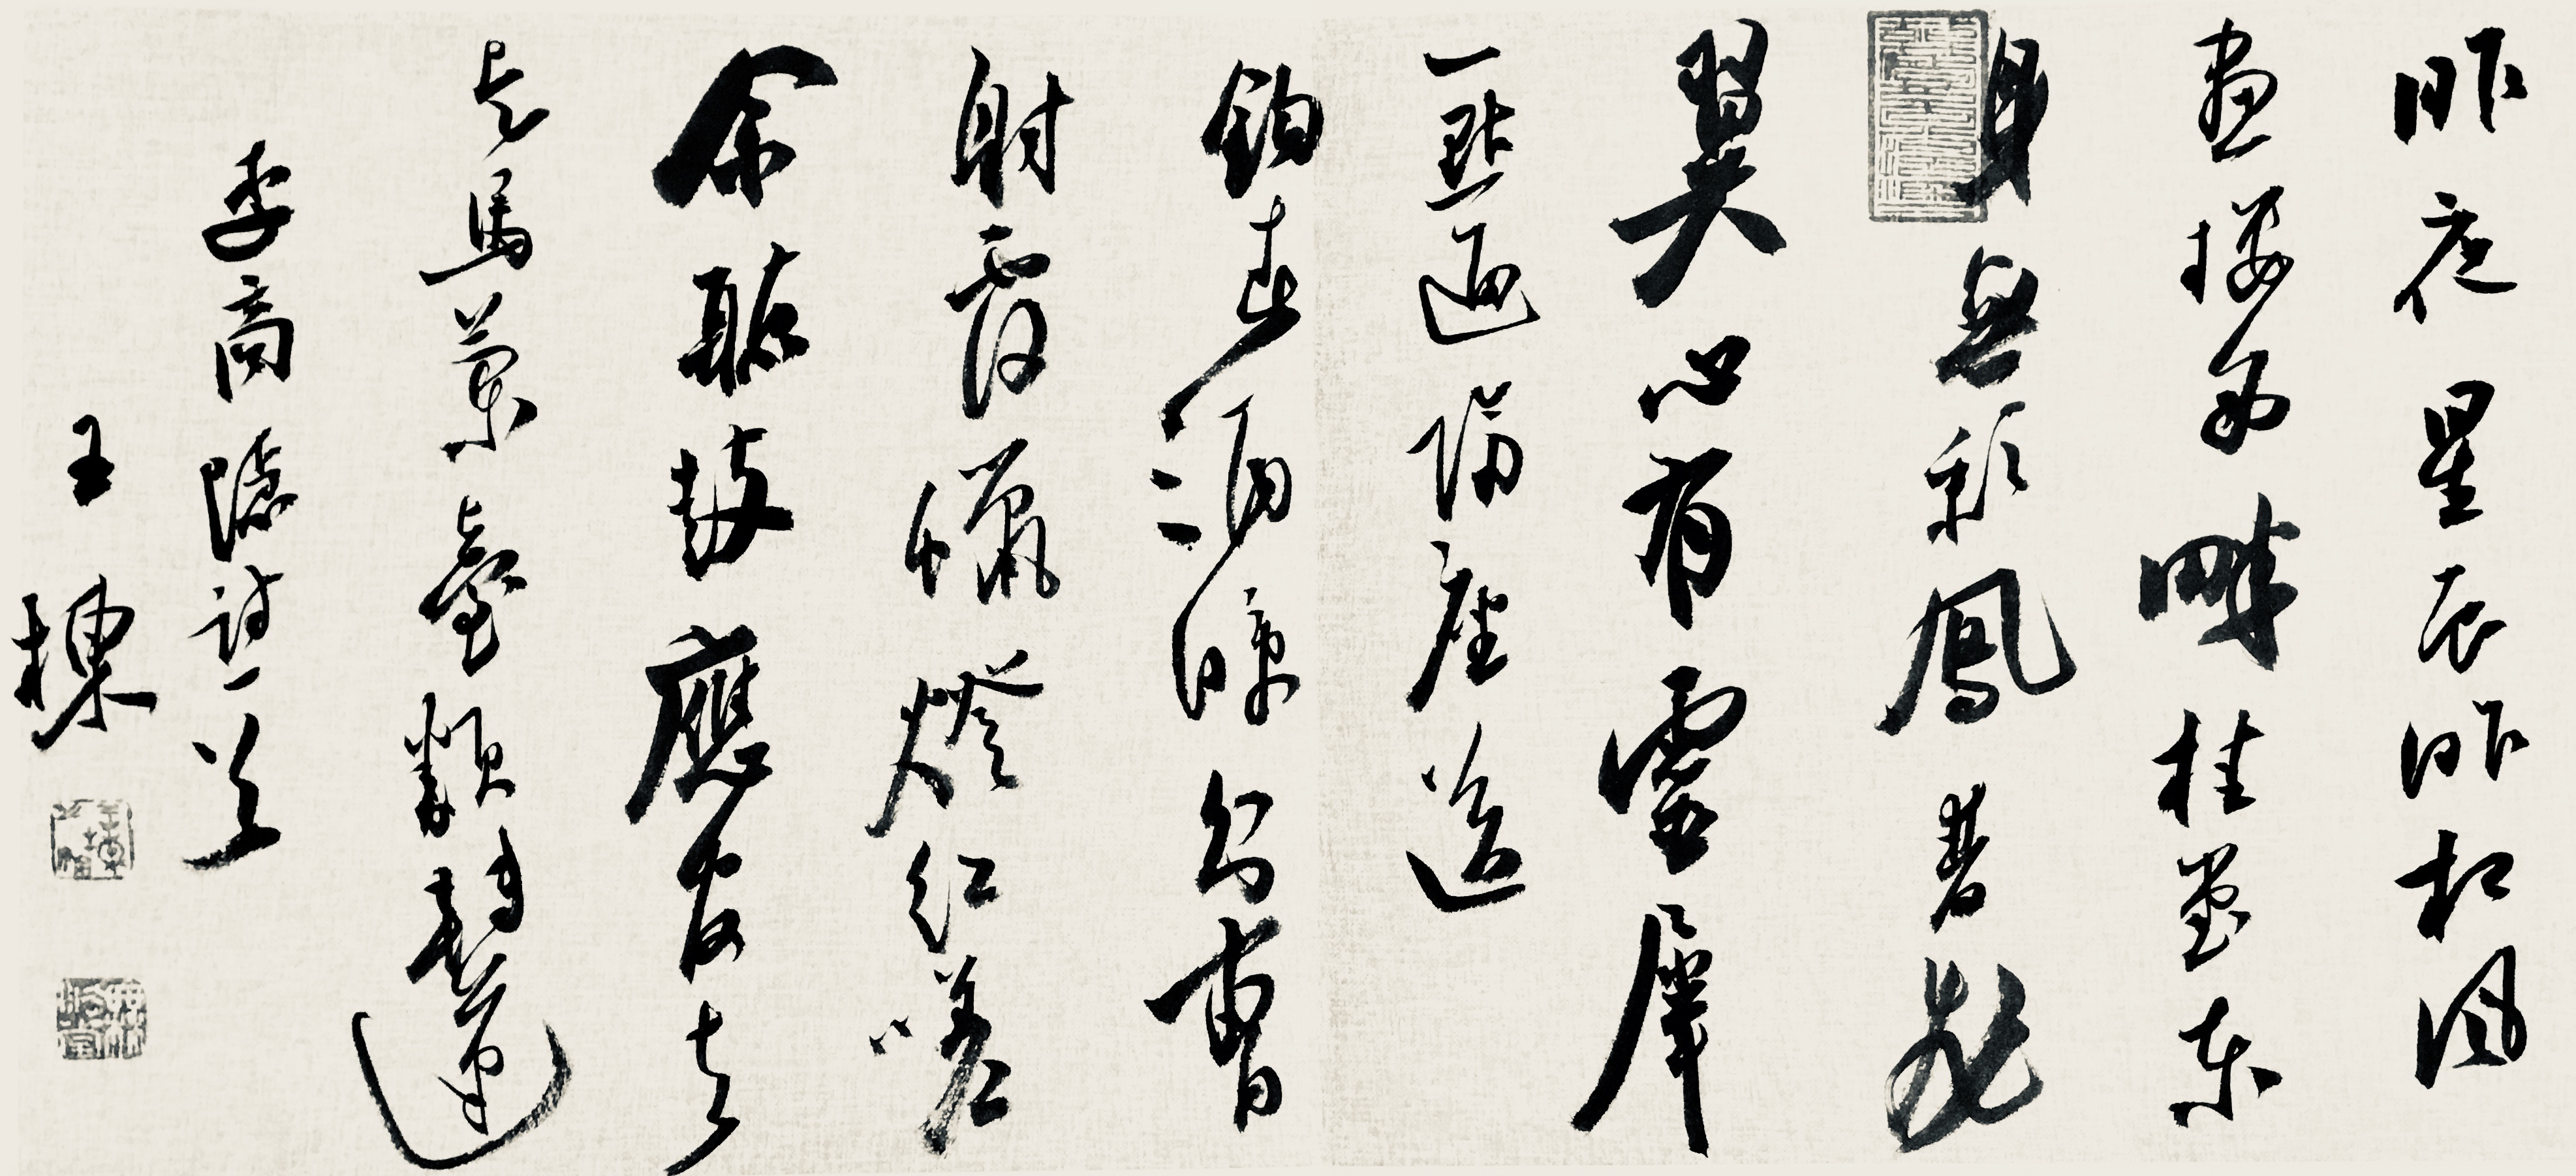 昨夜星辰昨夜風
畫樓西畔桂堂東
身無彩鳳雙飛
翼心有靈犀
一點通隔座送
鈎春酒暖分曹
射覆蠟燈紅嗟
余聽鼓應官去
走馬蘭臺類轉蓬
李商隱詩一首
王棟